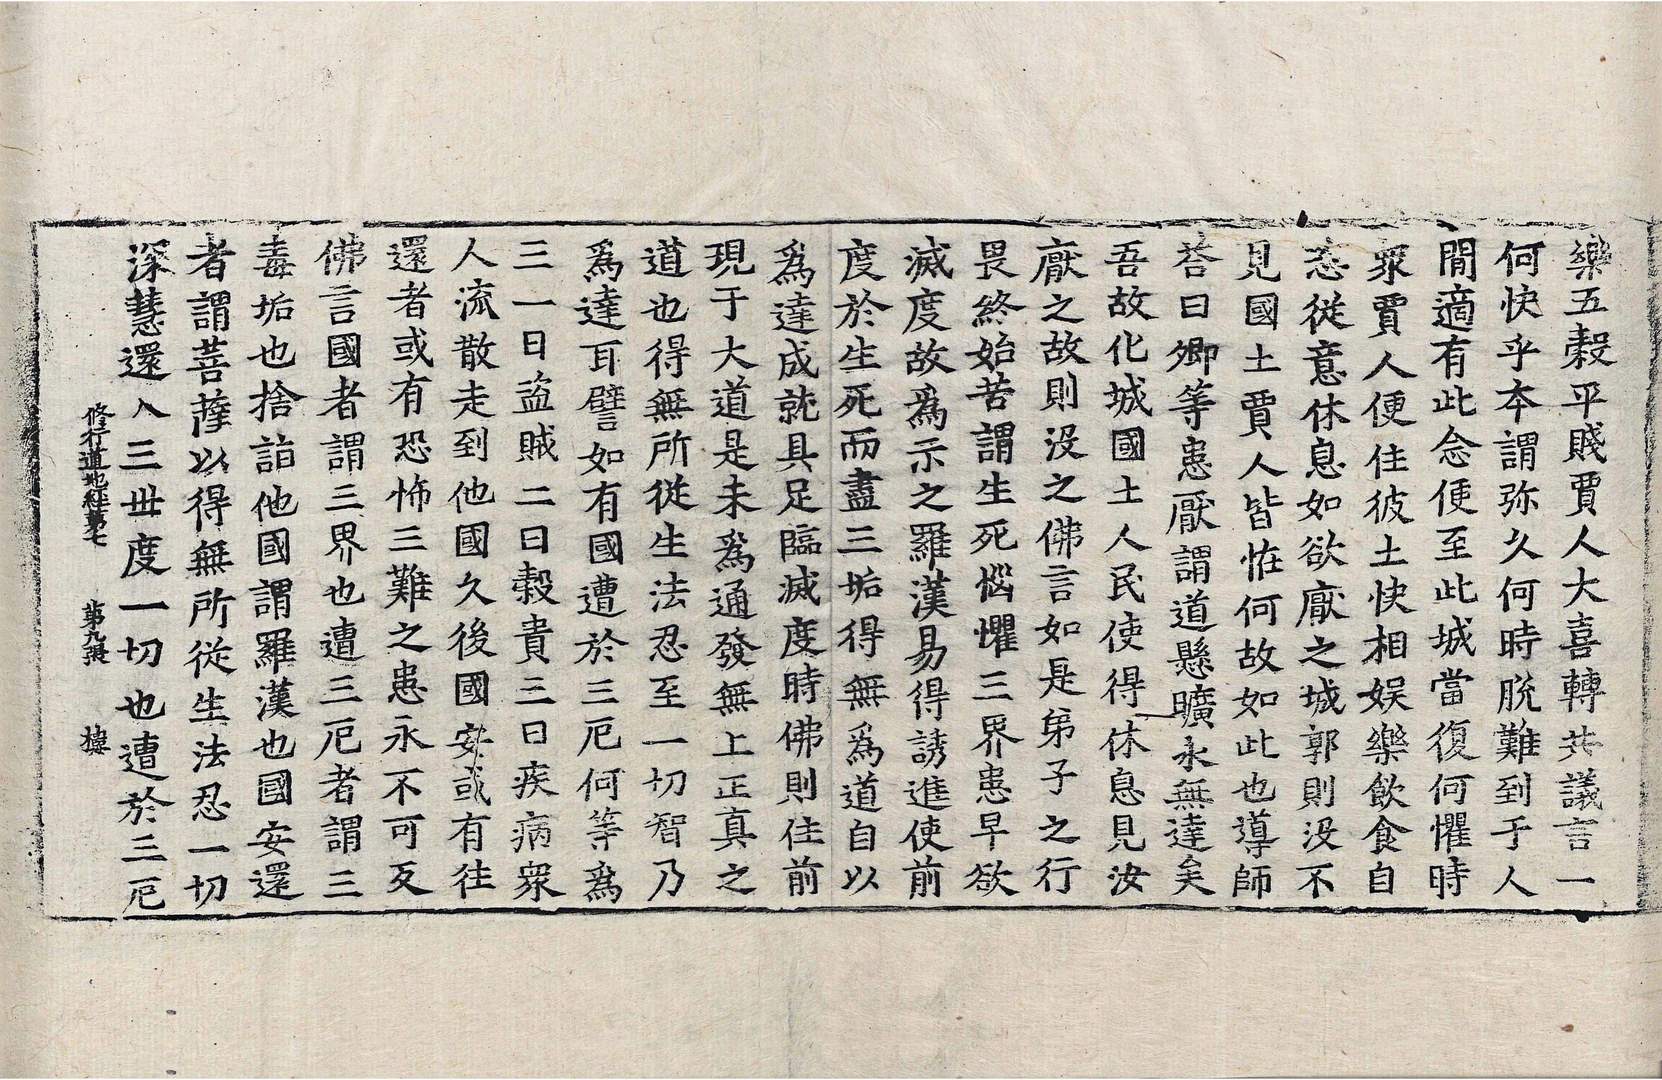 樂五穀平賤賈人大喜轉共議言一
何快乎本謂弥久何時脫難到于人
閒適有此念便至此城當復何懼時
衆賈人便住彼土快相娯樂飮食自
恣從意休息如欲厭之城郭則沒不
見國土賈人皆恠何故如此也導師
荅曰卿等患厭謂道懸曠永無達矣
吾故化城國土人民使得休息見汝
厭之故則沒之佛言如是弟子之行
畏終始苦謂生死惱懼三界患早欲
滅度故爲示之羅漢易得誘進使前
度於生死而盡三垢得無爲道自以
爲達成就具足臨滅度時佛則住前
現于大道是未爲通發無上正真之
道也得無所從生法忍至一切智乃
爲達耳譬如有國遭於三厄何等爲
三一曰盜賊二曰穀貴三曰疾病衆
人流散走到他國久後國安或有往
還者或有恐怖三難之患永不可反
佛言國者謂三界也遭三厄者謂三
毒垢也捨詣他國謂羅漢也國安還
者謂菩薩以得無所從生法忍一切
深慧還入三世度一切也遭於三厄
修行道地經第七 第九張 據